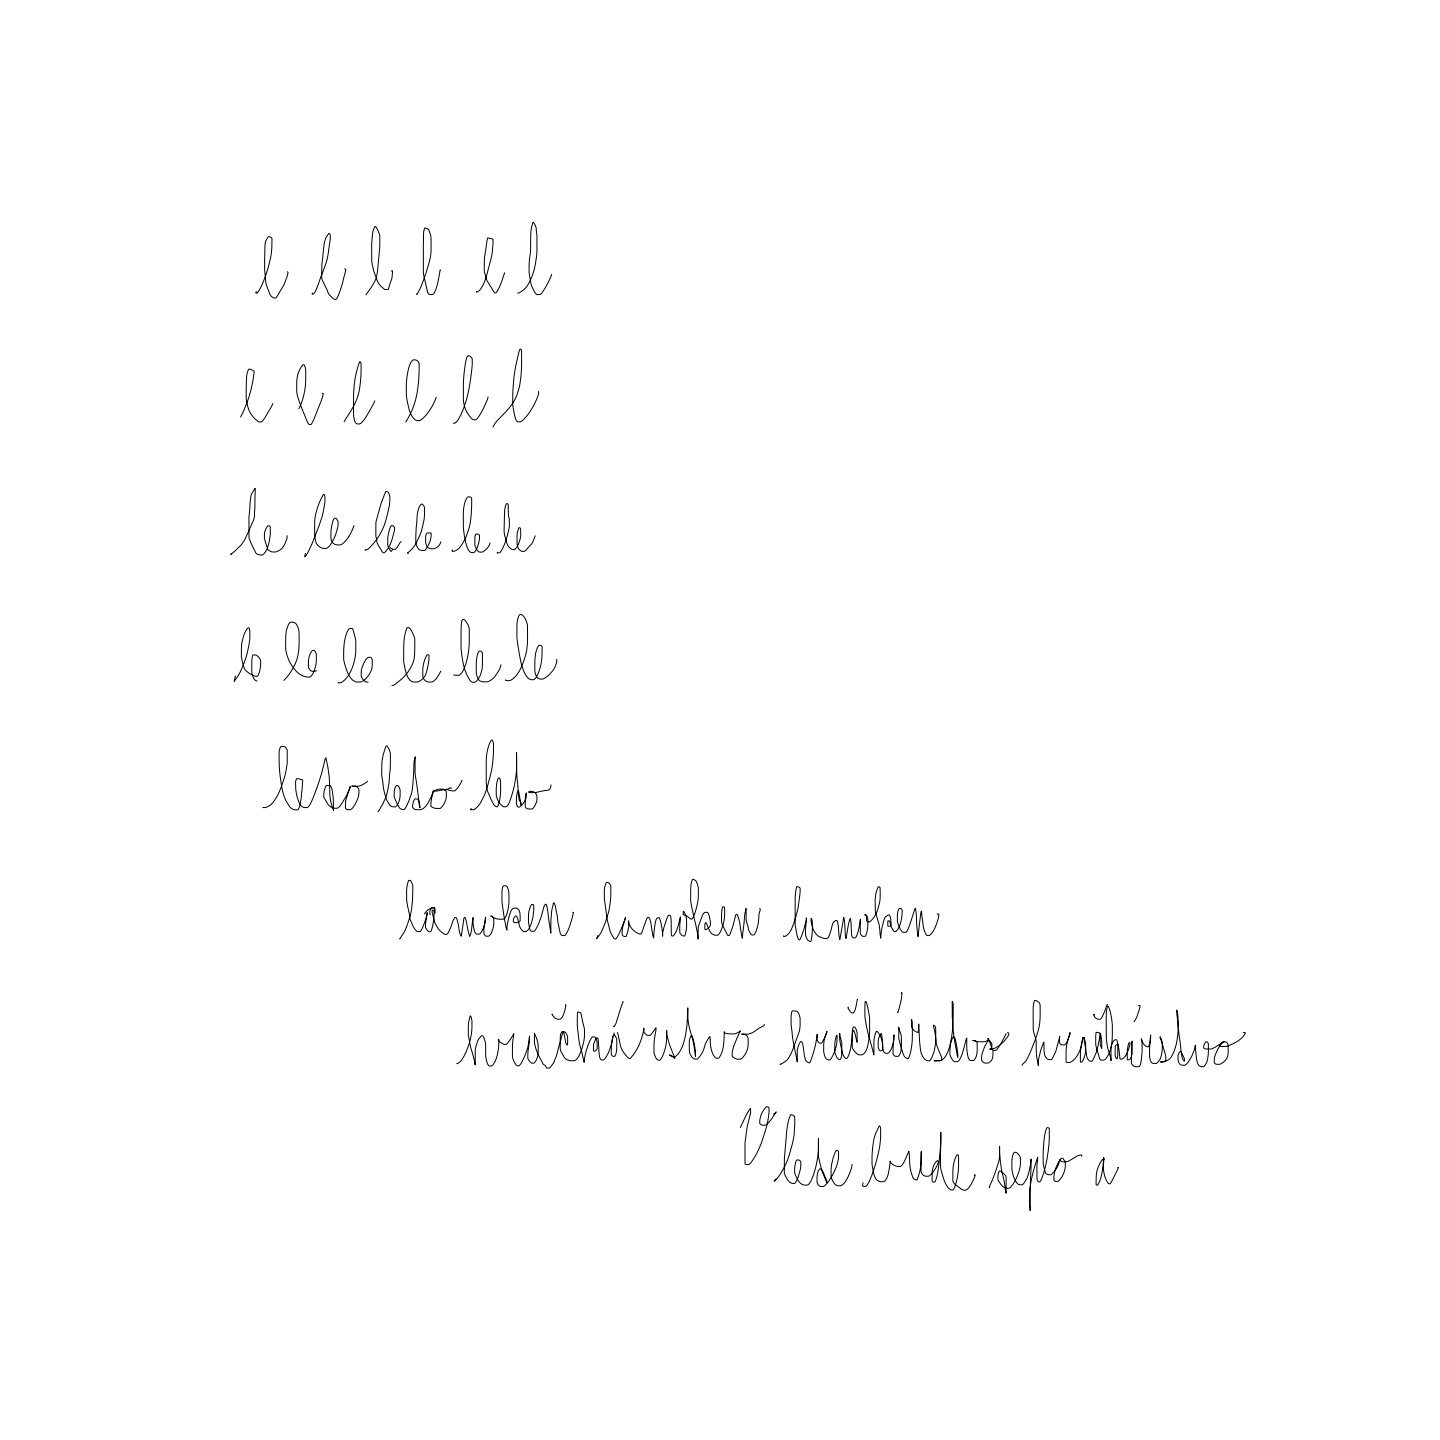 l l l l l l
l l l l l l
le le le le le le
le le le le le le
leto leto leto
lamoken lamoken lamoken
hračkárstvo hračkárstvo hračkárstvo
V lese bude seplo a